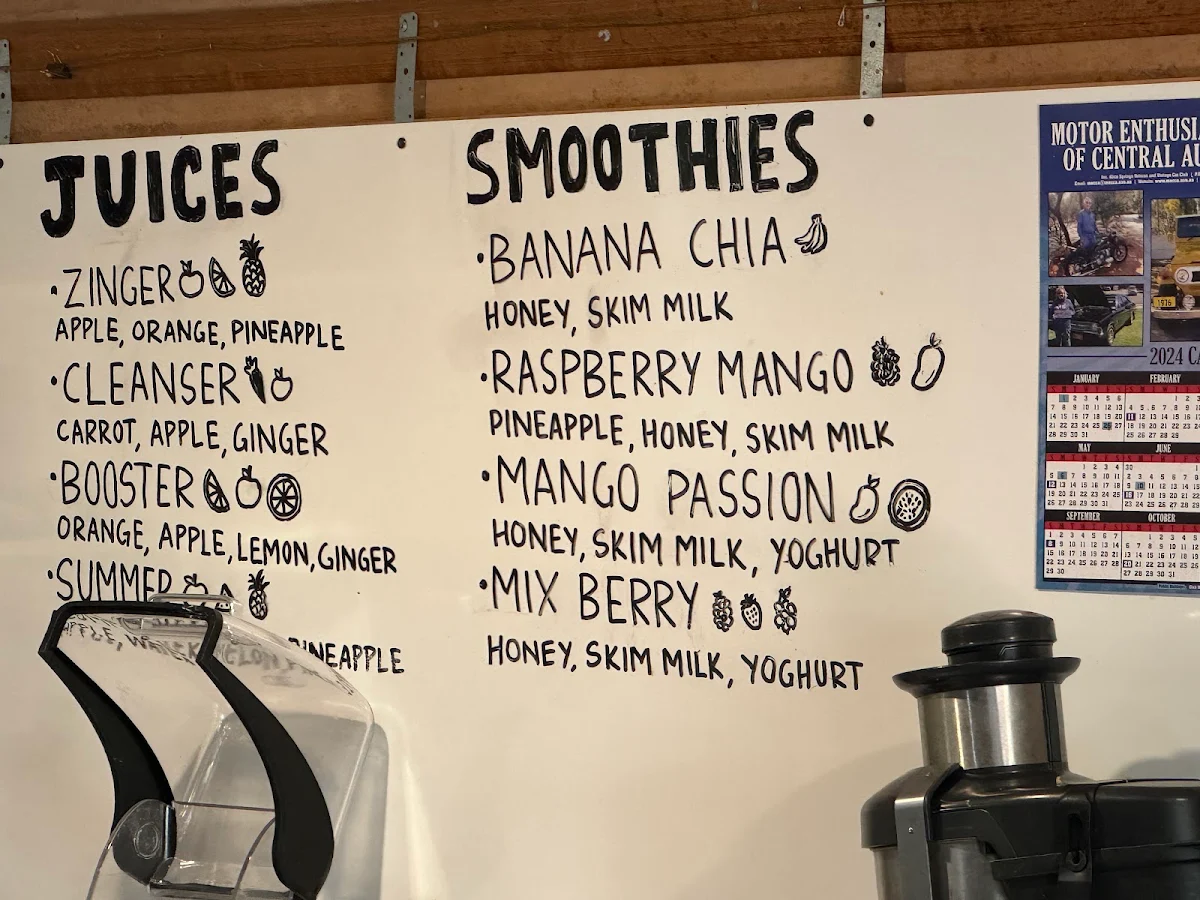 JUICES
• ZINGER
APPLE, ORANGE, PINEAPPLE
• CLEANSER
CARROT, APPLE, GINGER
• BOOSTER
ORANGE, APPLE, LEMON, GINGER
• SUMMER
APPLE, PINEAPPLE
SMOOTHIES
• BANANA CHIA
HONEY, SKIM MILK
• RASPBERRY MANGO
PINEAPPLE, HONEY, SKIM MILK
• MANGO PASSION
HONEY, SKIM MILK, YOGHURT
• MIX BERRY
HONEY, SKIM MILK, YOGHURT
MOTOR ENTHUSI
OF CENTRAL AU
1936
2024 CA
JANUARY FEBRUARY
MAY JUNE
SEPTEMBER OCTOBER